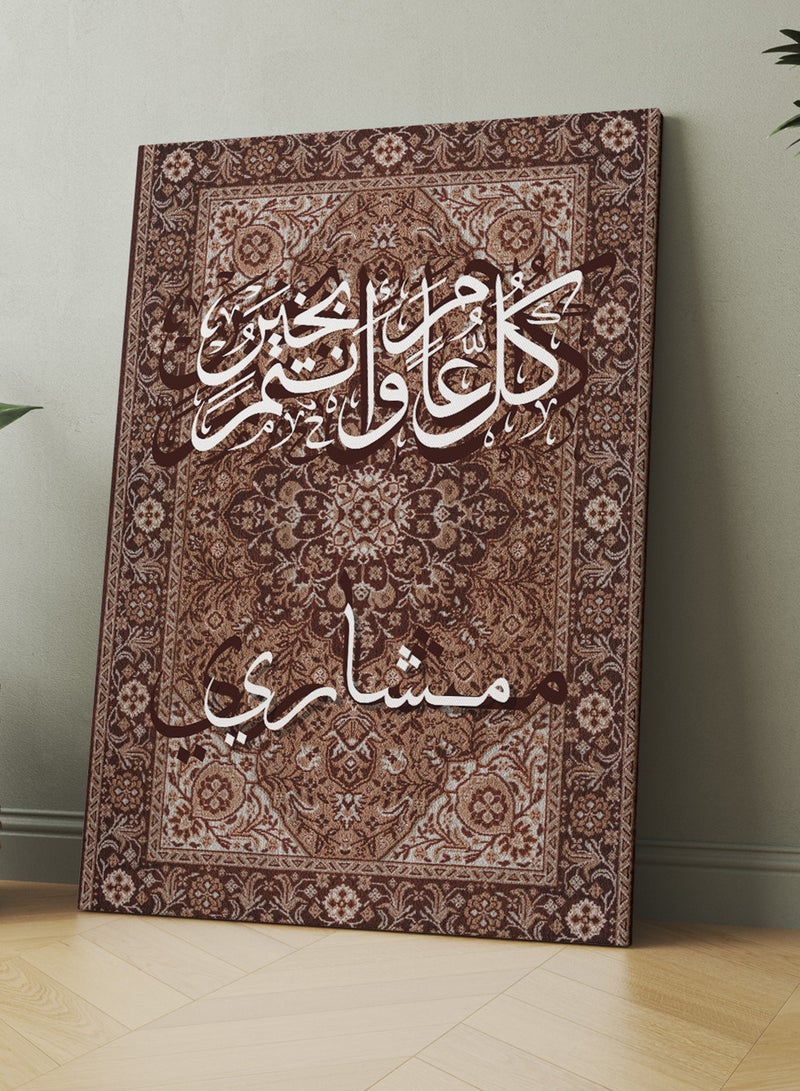 كل عام وأنتم بخير
مشاري